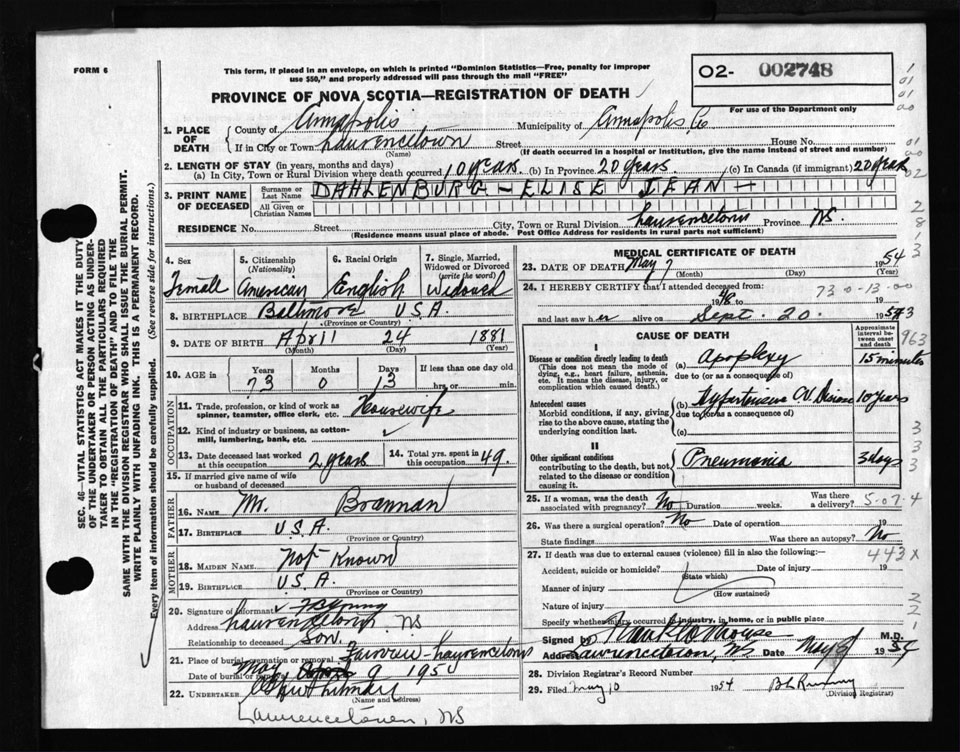 FORM 6
This form, if placed in an envelope, on which is printed "Dominion Statistics—Free, penalty for improper
use $50," and properly addressed will pass through the mail "FREE"
O2- 002748
For use of the Department only
PROVINCE OF NOVA SCOTIA—REGISTRATION OF DEATH
1. PLACE OF DEATH
County of Annapolis Municipality of Annapolis Co
If in City or Town Lawrencetown Street House No.
(Name) (If death occurred in a hospital or institution, give the name instead of street and number)
2. LENGTH OF STAY (in years, months and days)
(a) In City, Town or Rural Division where death occurred 10 years (b) In Province 20 years (c) In Canada (if immigrant) 20 years
3. PRINT NAME OF DECEASED
Surname or Last Name DAHLENBURG - ELISE JEAN -
All Given or Christian Names
RESIDENCE No. Street City, Town or Rural Division Lawrencetown Province NS.
(Residence means usual place of abode. Post Office Address for residents in rural parts not sufficient)
4. Sex Female
5. Citizenship (Nationality) American
6. Racial Origin English
7. Single, Married, Widowed or Divorced (write the word) Widowed
8. BIRTHPLACE Baltimore U.S.A.
(Province or Country)
9. DATE OF BIRTH April 24 1881
(Month) (Day) (Year)
10. AGE in Years 73 Months 0 Days 13 If less than one day old hrs. or min.
OCCUPATION
11. Trade, profession, or kind of work as spinner, teamster, office clerk, etc. Housewife
12. Kind of industry or business, as cotton-mill, lumbering, bank, etc. ✓
13. Date deceased last worked at this occupation 2 years
14. Total yrs. spent in this occupation 49.
15. If married give name of wife or husband of deceased
FATHER
16. NAME Mr. Brannan
17. BIRTHPLACE U.S.A.
(Province or Country)
MOTHER
18. MAIDEN NAME Not Known
19. BIRTHPLACE U.S.A.
(Province or Country)
20. Signature of informant Young
Address Lawrencetown, NS
Relationship to deceased Son.
21. Place of burial, cremation or removal Fairview - Lawrencetown
Date of burial or removal May 9 195
22. UNDERTAKER
(Name and address)
Lawrencetown, NS
MEDICAL CERTIFICATE OF DEATH
23. DATE OF DEATH May 7 1954
(Month) (Day) (Year)
24. I HEREBY CERTIFY that I attended deceased from:
1948 19
73-0-13-00
and last saw her alive on Sept. 20. 1953
CAUSE OF DEATH
Approximate interval between onset and death
I
Disease or condition directly leading to death
(This does not mean the mode of dying, e.g., heart failure, asthenia, etc. It means the disease, injury, or complication which caused death.)
(a) Apoplexy 15 minutes
due to (or as a consequence of)
Antecedent causes
Morbid conditions, if any, giving rise to the above cause, stating the underlying condition last.
(b) Hypertensive C.V. Disease 10 years
due to (or as a consequence of)
(c)
II
Other significant conditions
contributing to the death, but not related to the disease or condition causing it.
Pneumonia 3 days
25. If a woman, was the death associated with pregnancy? No Duration weeks. Was there a delivery?
5-07-4
26. Was there a surgical operation? No Date of operation 19
State findings Was there an autopsy? No
27. If death was due to external causes (violence) fill in also the following:—
443 X
Accident, suicide or homicide? Date of injury 19
(State which)
Manner of injury
(How sustained)
Nature of injury
Specify whether injury occurred in industry, in home, or in public place
Signed by Morse M.D.
Address Lawrencetown, NS Date May 8 1954
28. Division Registrar's Record Number
29. Filed May 10 1954
(Division Registrar)
SEC. 46—VITAL STATISTICS ACT MAKES IT THE DUTY
OF THE UNDERTAKER OR PERSON ACTING AS UNDER-
TAKER TO OBTAIN ALL THE PARTICULARS REQUIRED
IN THE "REGISTRATION OF DEATH" AND TO FILE THE
SAME WITH THE DIVISION REGISTRAR WHO SHALL ISSUE THE BURIAL PERMIT.
WRITE PLAINLY WITH UNFADING INK. THIS IS A PERMANENT RECORD.
Every item of information should be carefully supplied. (See reverse side for instructions.)